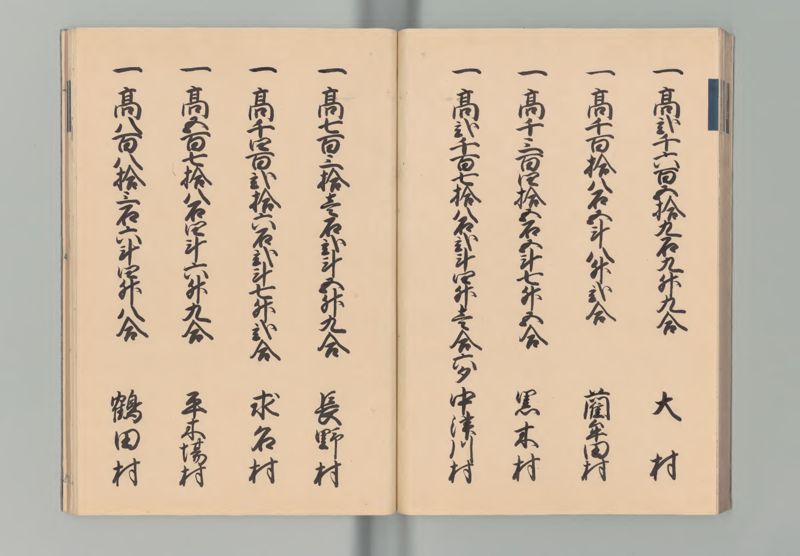 一 高弐千六百五拾九石九升九合 大村
一 高千百拾八石五斗八升弐合 藺牟田村
一 高千三百四拾五石五斗七升五合 黒木村
一 高弐千百七拾八石弐斗四升壱合六夕 中津川村
一 高七百三拾壱石弐斗五升九合 長野村
一 高千四百弐拾六石弐斗七升弐合 求名村
一 高五百七拾八石四斗六升九合 平木場村
一 高八百八拾三石六斗四升八合 鶴田村